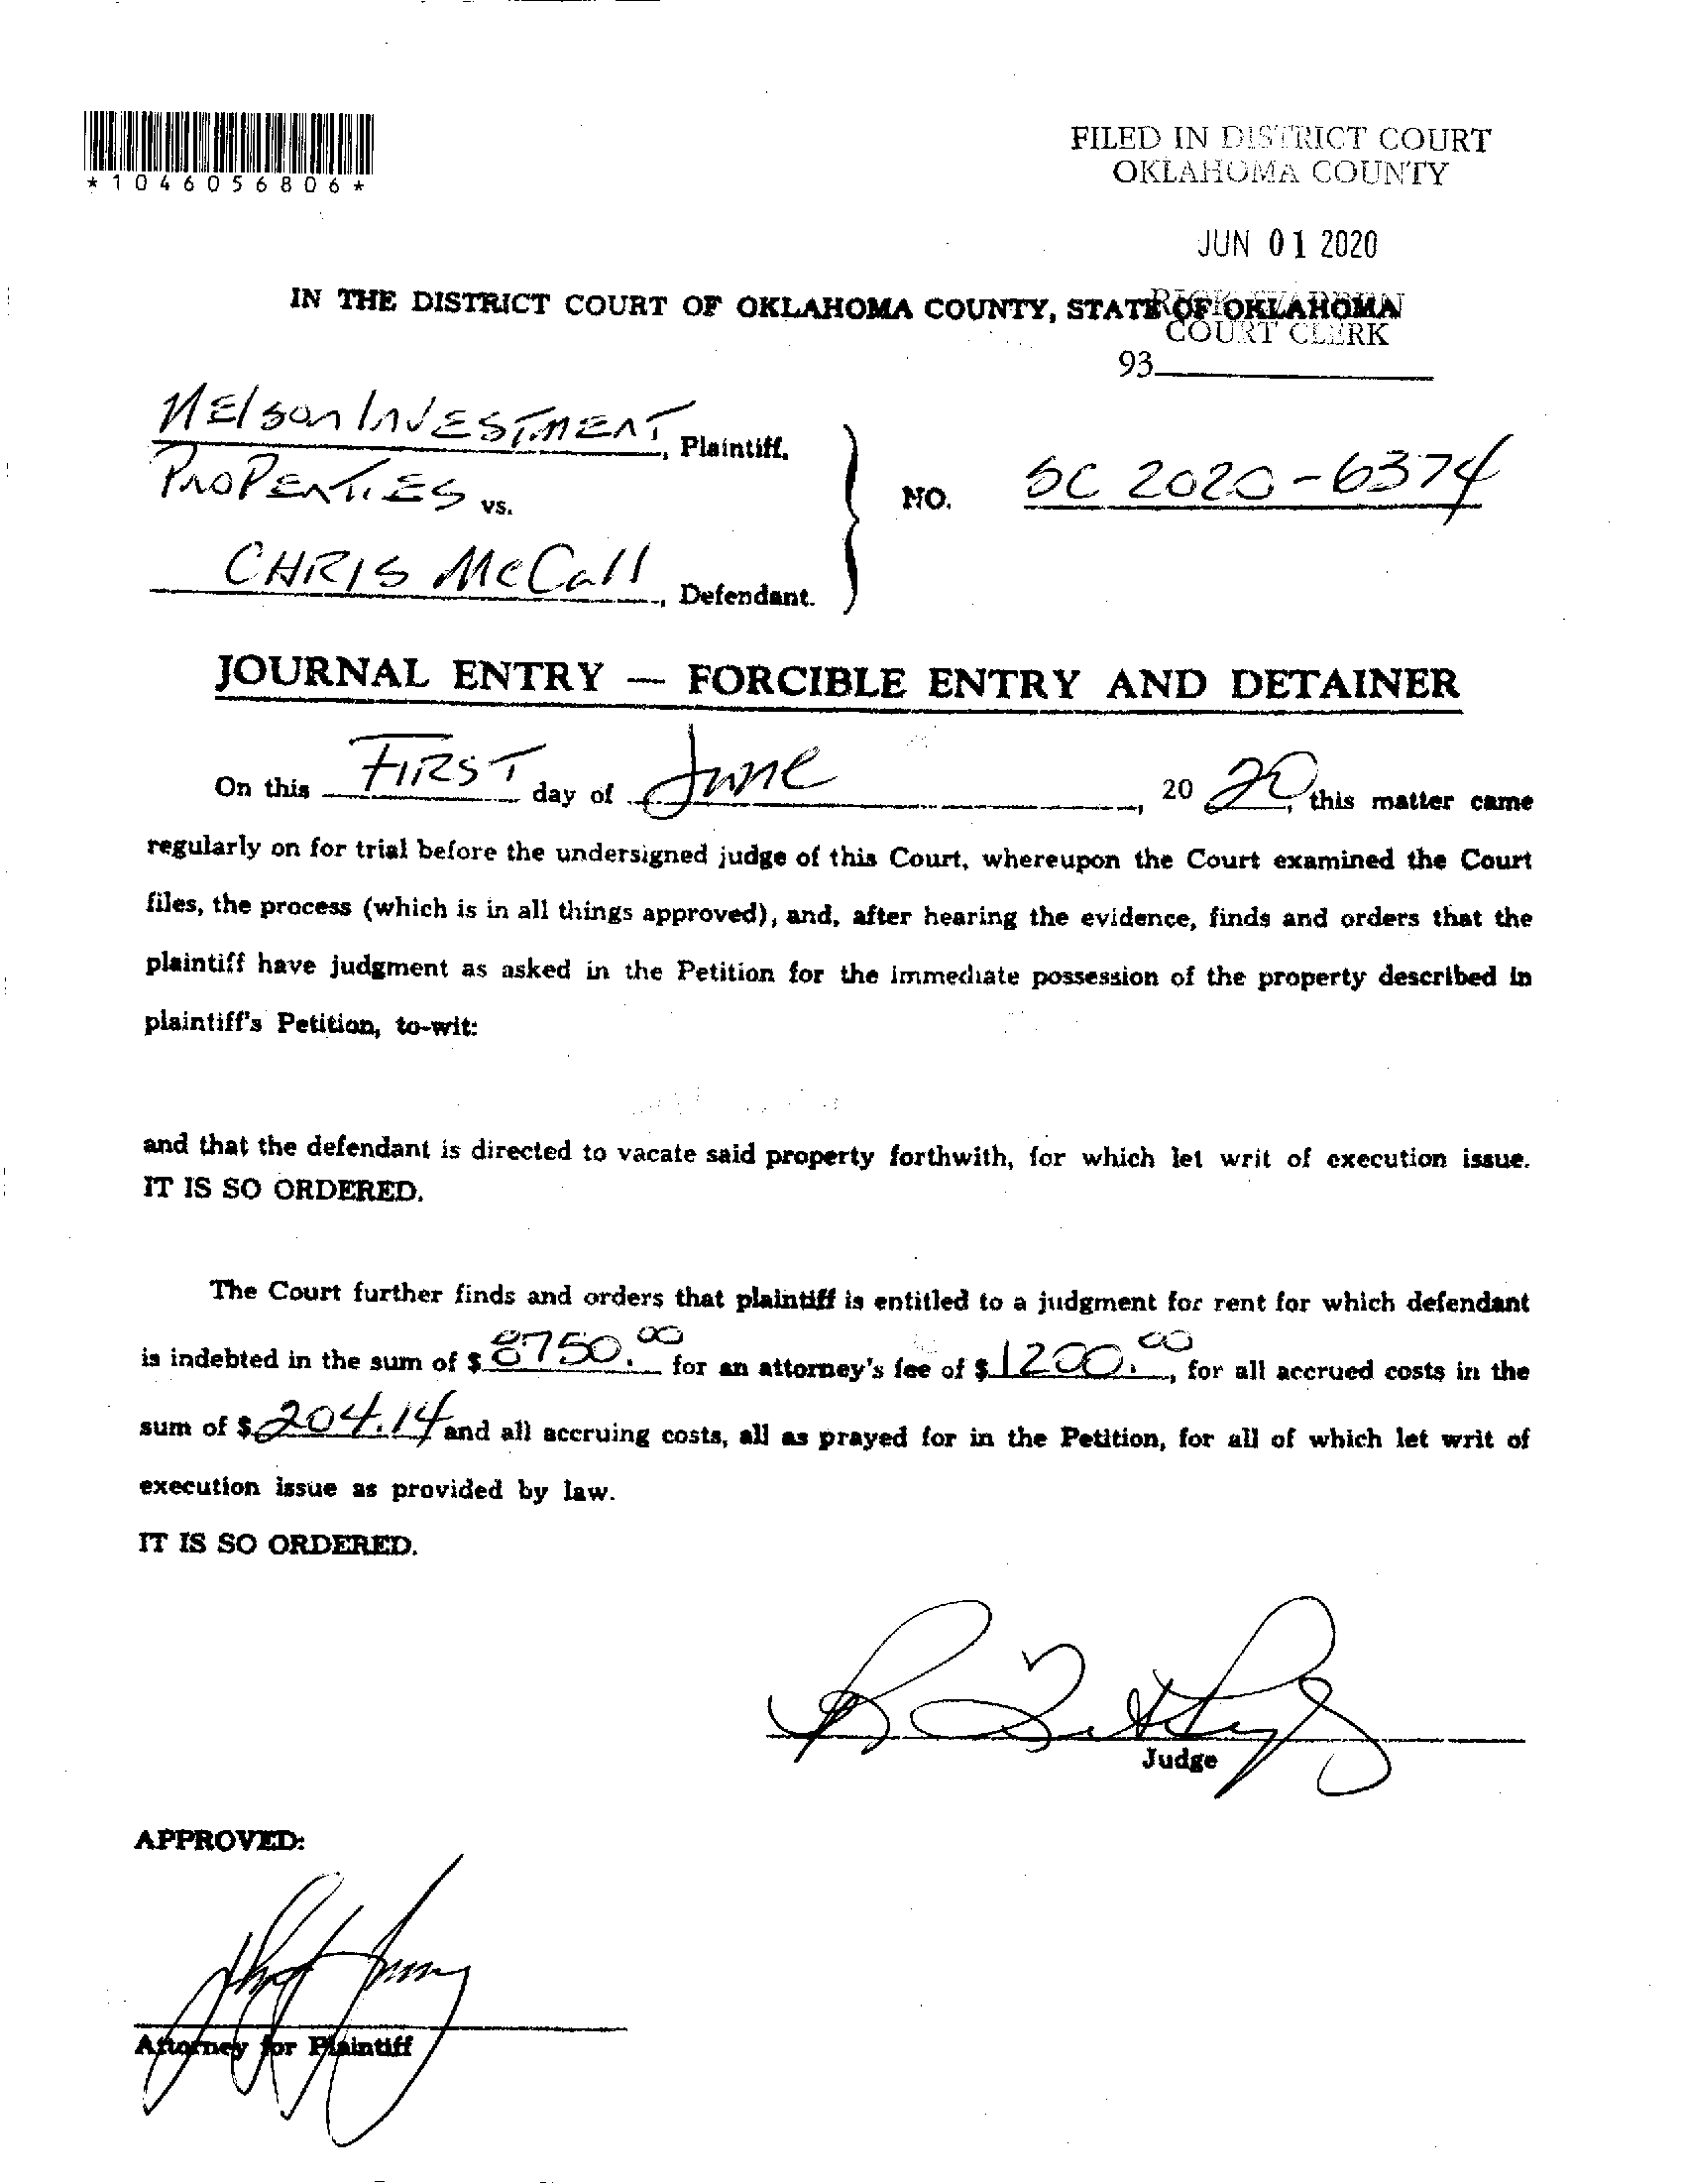 *1046056806*
FILED IN DISTRICT COURT
OKLAHOMA COUNTY
JUN 01 2020
IN THE DISTRICT COURT OF OKLAHOMA COUNTY, STATE OF OKLAHOMA
COURT CLERK
93
Nelson Investment, Plaintiff,
Properties vs.
NO. SC 2020-6374
CHRIS McCall, Defendant.
JOURNAL ENTRY — FORCIBLE ENTRY AND DETAINER
On this FIRST day of June, 20 20, this matter came
regularly on for trial before the undersigned judge of this Court, whereupon the Court examined the Court
files, the process (which is in all things approved), and, after hearing the evidence, finds and orders that the
plaintiff have judgment as asked in the Petition for the immediate possession of the property described in
plaintiff's Petition, to-wit:
and that the defendant is directed to vacate said property forthwith, for which let writ of execution issue.
IT IS SO ORDERED.
The Court further finds and orders that plaintiff is entitled to a judgment for rent for which defendant
is indebted in the sum of $ 8750.00 for an attorney's fee of $ 1200.00, for all accrued costs in the
sum of $ 204.14 and all accruing costs, all as prayed for in the Petition, for all of which let writ of
execution issue as provided by law.
IT IS SO ORDERED.
Judge
APPROVED:
Attorney for Plaintiff